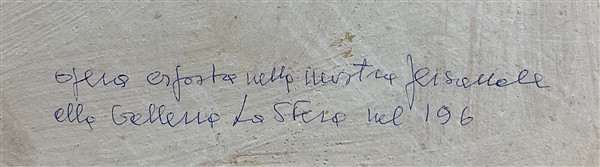 opera esposta nella mostra personale
alla Galleria La Sfera nel 196